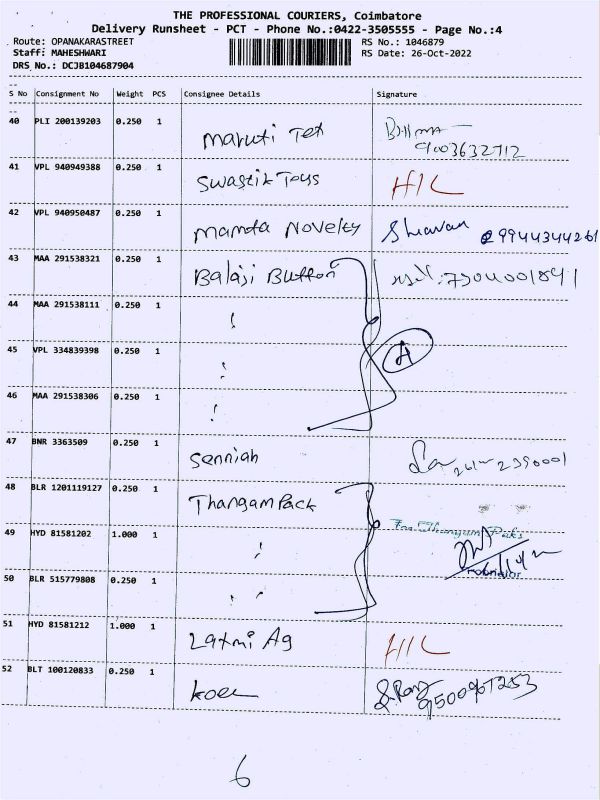 THE PROFESSIONAL COURIERS, Coimbatore
Delivery Runsheet - PCT - Phone No.:0422-3505555 - Page No.:4
Route: OPANAKARASTREET RS No.: 1046879
Staff: MAHESHWARI RS Date: 26-Oct-2022
DRS No.: DCJB104687904
S No Consignment No Weight PCS Consignee Details Signature
40 PLI 200139203 0.250 1 Maruti Tex 9003632712
41 VPL 940949388 0.250 1 Swastik Toys H/L
42 VPL 940950487 0.250 1 Mamta Novelty Shravan 9944344261
43 MAA 291538321 0.250 1 Balaji Button 7304001841
44 MAA 291538111 0.250 1 "
45 VPL 334839398 0.250 1 " A
46 MAA 291538306 0.250 1 "
47 BNR 3363509 0.250 1 Senniah 2390001
48 BLR 1201119127 0.250 1 Thangam Pack
For Thangam Paks
49 HYD 81581202 1.000 1 "
50 BLR 515779808 0.250 1 "
51 HYD 81581212 1.000 1 Laxmi Ag H/L
52 BLT 100120833 0.250 1 9500967253
6